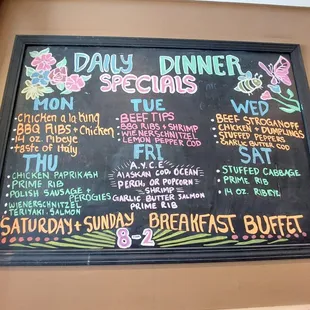 DAILY DINNER
SPECIALS
MON
CHICKEN a la King
BBQ RIBS + Chicken
14 oz Ribeye
Taste of Italy
TUE
BEEF TIPS
BBQ RIBS + SHRIMP
WIENERSCHNITZEL
LEMON PEPPER COD
WED
BEEF STROGANOFF
CHICKEN + DUMPLINGS
STUFFED PEPPERS
GARLIC BUTTER COD
THU
CHICKEN PAPRIKASH
PRIME RIB
POLISH SAUSAGE +
PEROGIES
WIENERSCHNITZEL
TERIYAKI SALMON
FRI
A.Y.C.E
ALASKAN COD OCEAN
PERCH OR POPCORN
SHRIMP
GARLIC BUTTER SALMON
PRIME RIB
SAT
STUFFED CABBAGE
PRIME RIB
14 OZ. RIBEYE
SATURDAY + SUNDAY BREAKFAST BUFFET
8-2